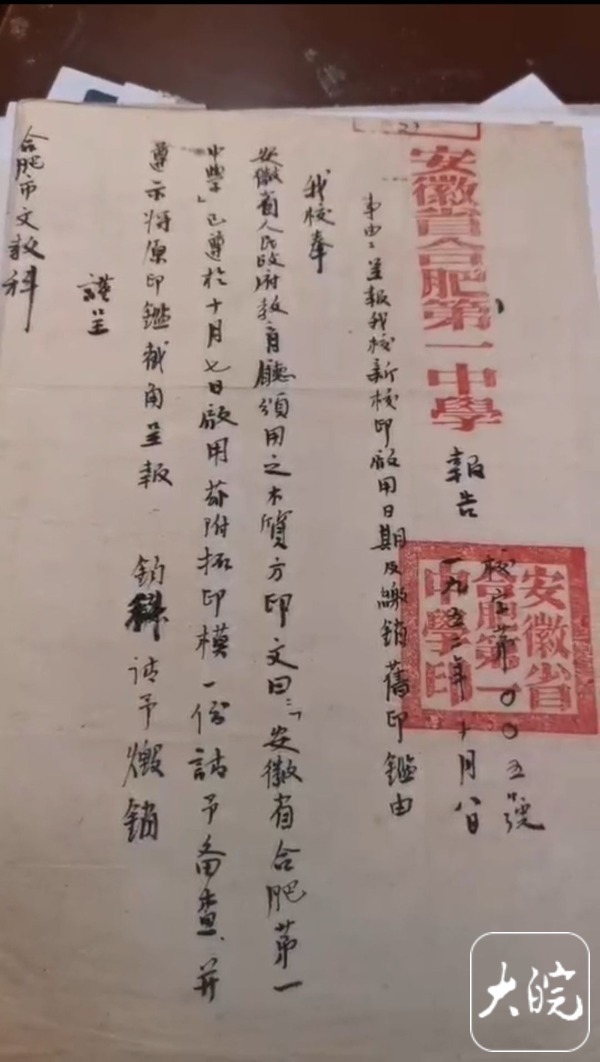 安徽省合肥第一中學 報告
校字第〇〇五號
一九五二年十月八日
安徽省
合肥第一
中學印
事由：呈報我校新校印啟用日期及繳銷舊印鑑由
我校奉
安徽省人民政府教育廳頒用之木質方印文曰：「安徽省合肥第一
中學」已遵於十月七日啟用茲附拓印模一份請予备查、并
遵示将原印鑑截角呈報 鈞科请予燬銷
謹呈
合肥市文教科
大皖